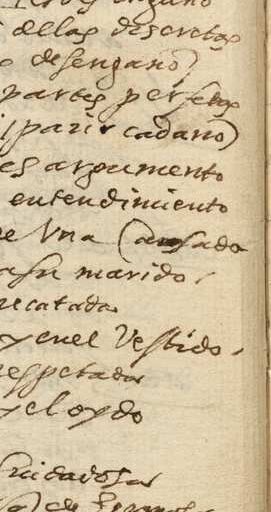 engaño
dellas discretas
desengaño
partes perfetas
parir cadaño
es argumento
entendimiento
Una Casada
asu marido
recatada
y enel Vestido
respetada
y eloydo
Cuidadosa
de hermosa